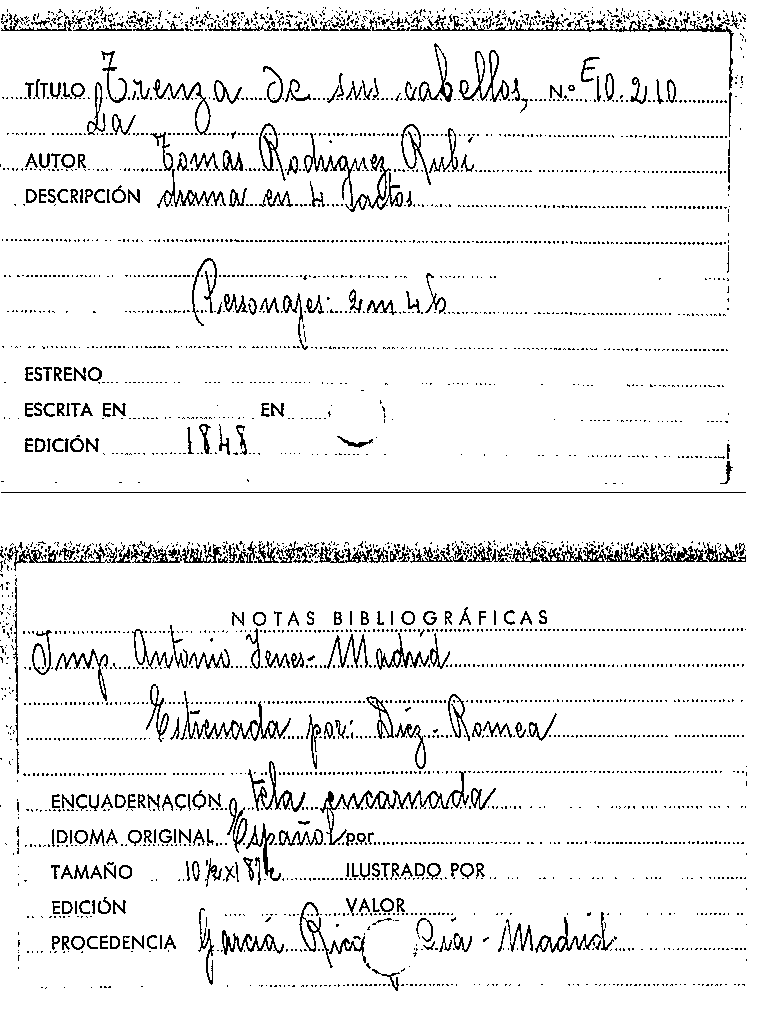 TÍTULO Trenza de sus cabellos, N.º E10.210
La
AUTOR Tomás Rodriguez Rubí
DESCRIPCIÓN drama en 4 actos
Personajes: 2m 4h
ESTRENO
ESCRITA EN EN
EDICIÓN 1848
NOTAS BIBLIOGRÁFICAS
Imp. Antonio Yenes- Madrid
Estrenada por: Diez - Romea
ENCUADERNACIÓN tela encarnada
IDIOMA ORIGINAL Español por
TAMAÑO 10½x18½ ILUSTRADO POR
EDICIÓN VALOR
PROCEDENCIA García Rico Cía - Madrid